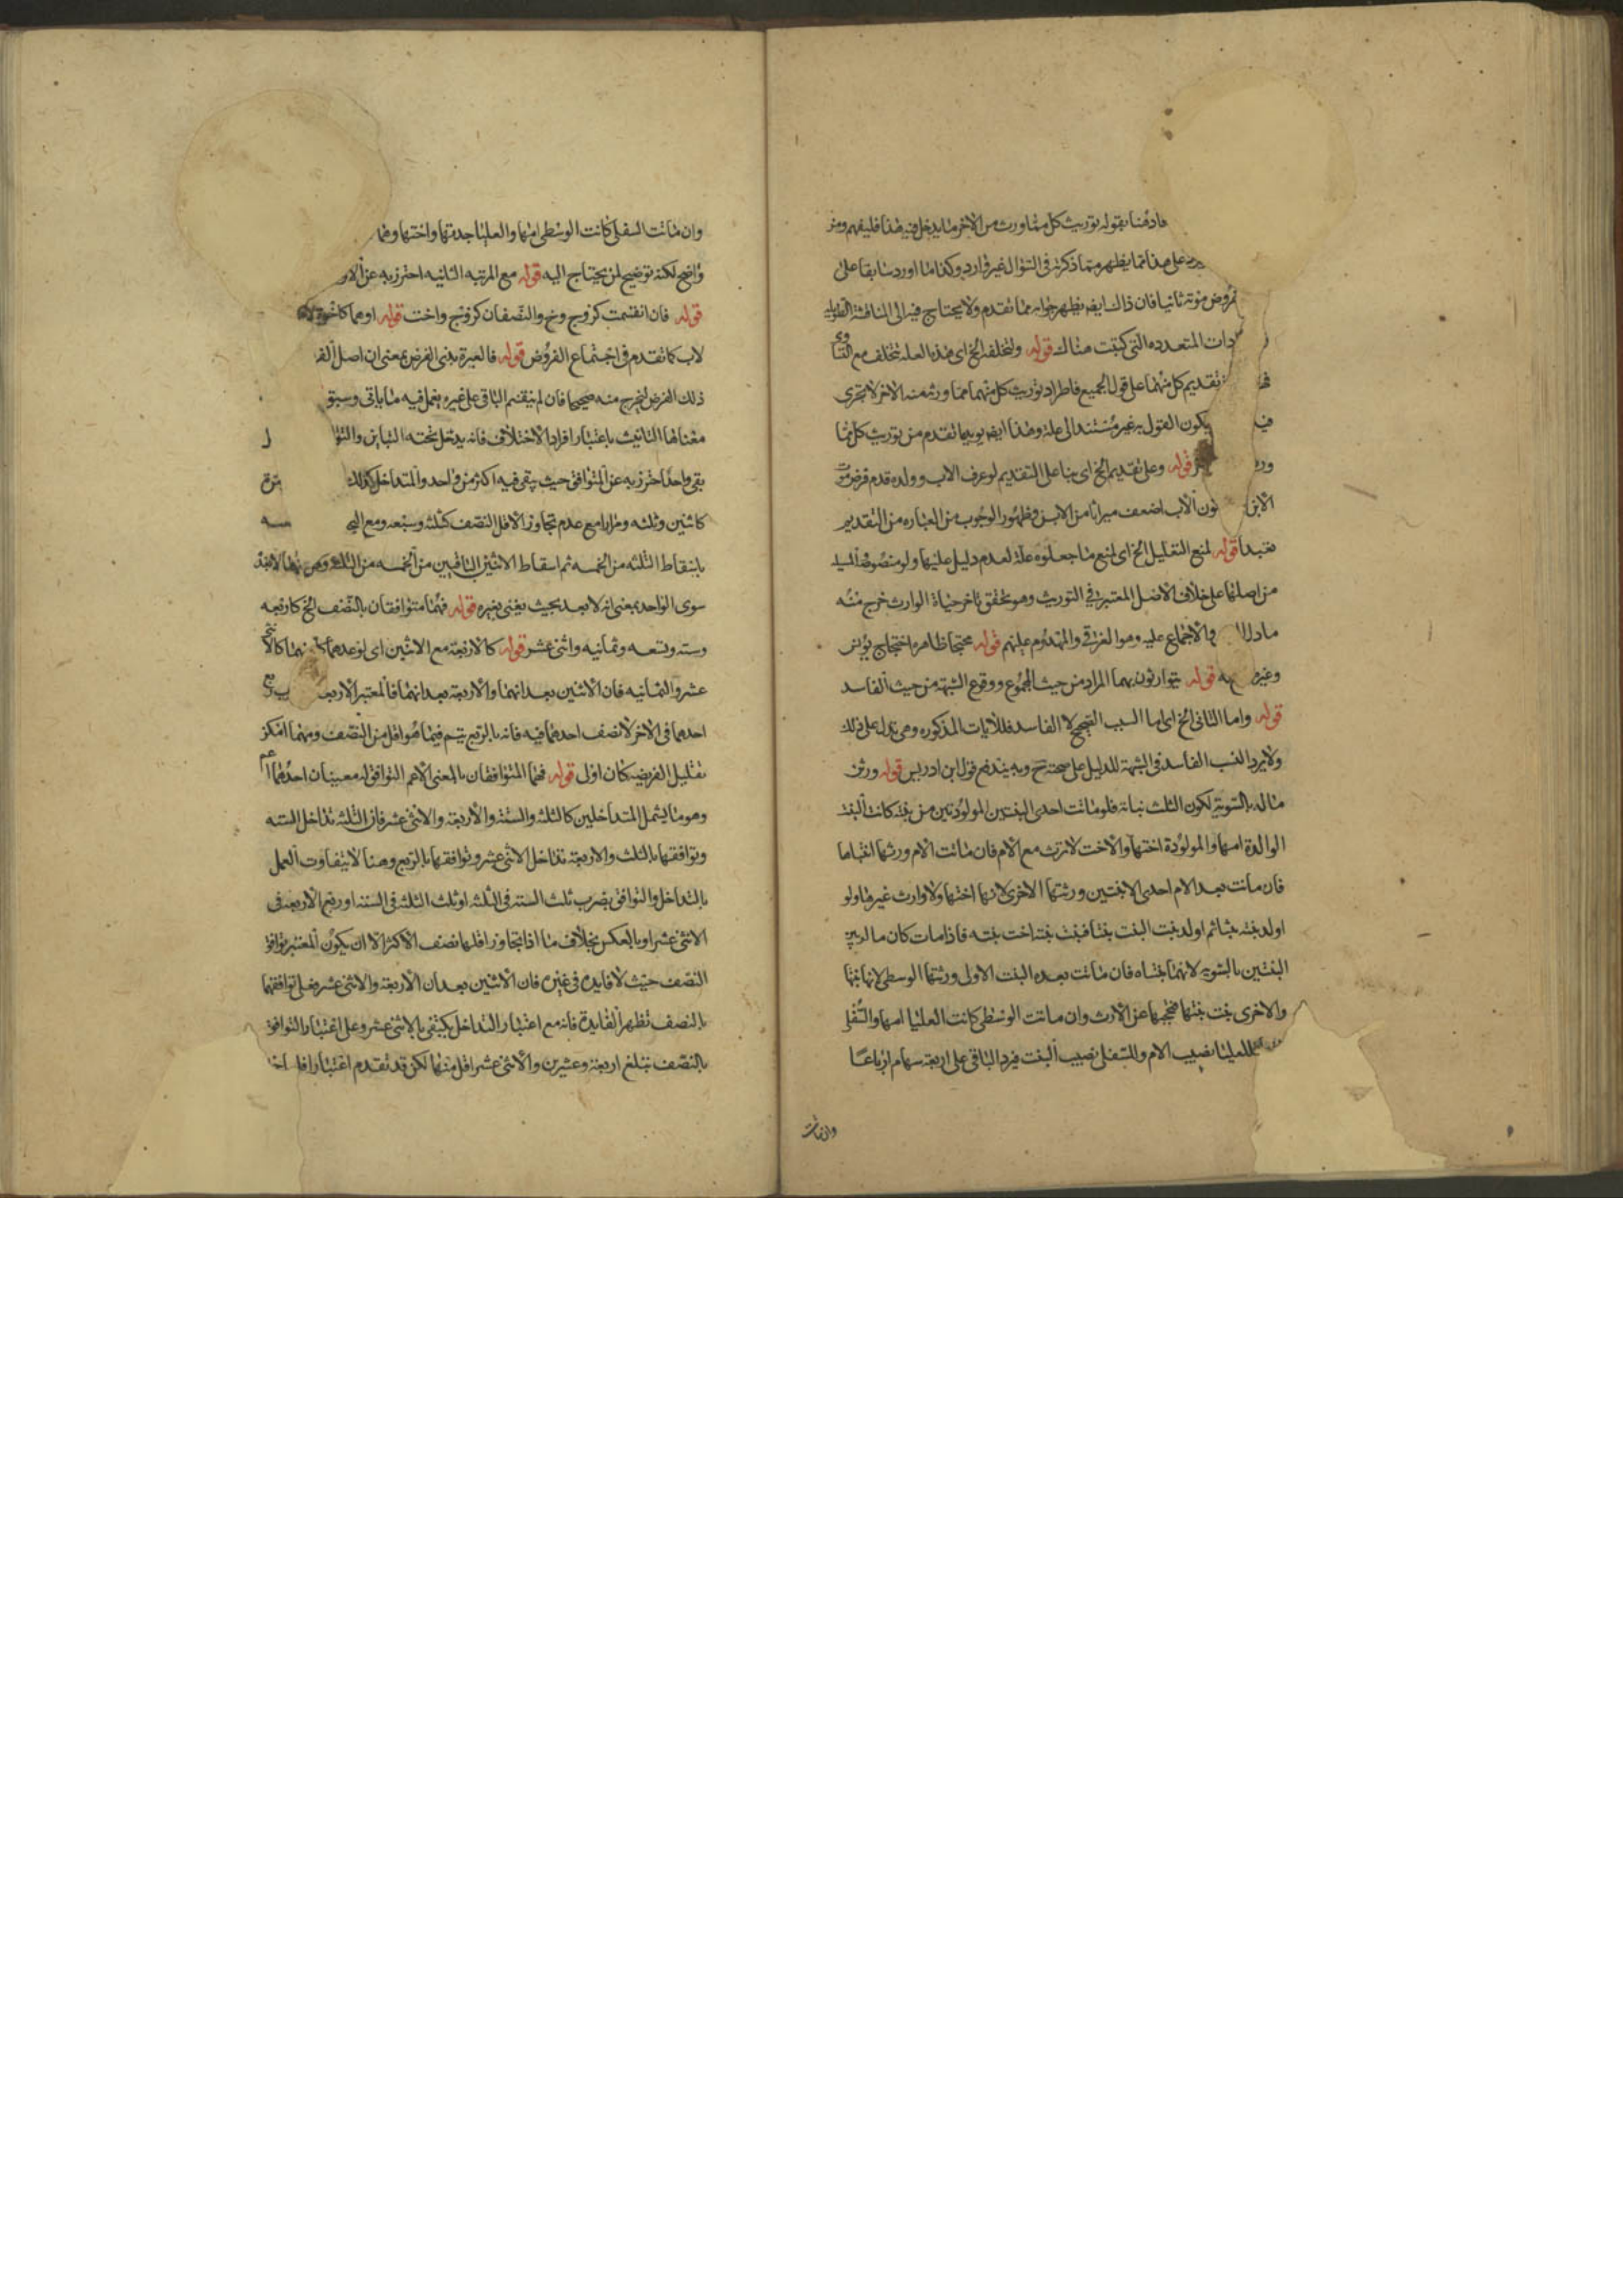 فادفنا بقوله توريث كل مما ورث من الآخر ما يدخل فيه هذا فليفهم ومنه
على هذا مما يظهر مما ذكرته في السؤال غير وارد وكذا ما اورد سابقا على
فروض موته ثانيا فان ذلك ايض يظهر جوابه مما تقدم ولا يحتاج فيه الى المناقشة الطويلة
دات المتعدده التي كتبت هناك قوله ولتخلفه الخ اى هذه العله تتخلف مع التساوى
تقديم كل منهما على قول الجميع فاطراد توريث كل منهما مما ورثه منه الاخر لا تجرى
فيكون القول به غير مستند الى علة وهذا ايض يويد ما تقدم من توريث كل مما
ور قوله وعلى تقديم الخ اى بنا على التقديم لو غرق الاب وولده قدم فرض موت
الابن لكون الاب اضعف ميراثا من الابن وظهور الوجوب من العباره من التقديم
تعبدا قوله لمنع التعليل الخ اى لمنع ما جعلوه علة لعدم دليل عليها ولو منصوصة لمسيله
من اصلها على خلاف الاصل المعتبر في التوريث وهو تحقق تاخر حياة الوارث خرج منه
ما دل الا والاجماع عليه وهو الغرقى والمهدوم عليهم قوله محتجا ظاهره احتجاج يونس
وغيره به قوله يتوارثون بهما المراد من حيث المجموع ووقوع الشبهة من حيث الفاسد
قوله واما الثانى الخ اى اما السبب الصحيح لا الفاسد فللايات المذكوره وهى تدل على ذلك
ولا يرد النسب الفاسد فى الشبهة للدليل على صحته شرعا وبه يندفع قول ابن ادريس قوله ورثن
ماله بالسويه لكون الثلث بناته فلو ماتت احدى البنتين المولودتين من بنته كانت البنت
الوالدة امها والمولودة اختها والاخت لا ترث مع الام فان ماتت الام ورثها ابنتاها
فان ماتت بعد الام احدى الابنتين ورثتها الاخرى لانها اختها ولا وارث غيرها ولو
اولد بنته بنتا ثم اولد بنت البنت بنتا فبنت بنته اخت بنته فاذا مات كان ماله بين
البنتين بالسويه لانهما بنتاه فان ماتت بعده البنت الاولى ورثتها الوسطى لانها بنتها
والاخرى بنت بنتها فتحجبها عن الارث وان ماتت الوسطى كانت العليا امها والسفلى
للعليا نصيب الام وللسفلى نصيب البنت فيرد الباقى على اربعة سهام ارباعا
وان ماتت
وان ماتت السفلى كانت الوسطى امها والعليا جدتها واختها وهما
واضح لكنه توضيح لمن يحتاج اليه قوله مع المرتبه الثانيه احترز به عن الاو
قوله فان انقسمت كزوج وخ والنصفان كزوج واخت قوله او هما كاخوة
لاب كما تقدم فى اجتماع الفروض قوله فالعبرة بذى الفرض بمعنى ان اصل الفر
ذلك الفرض ليخرج منه صحيحا فان لم ينقسم الباقى على غيره يعمل فيه ما ياتى وسبق
معناها التانيث باعتبار افراد الاختلاف فانه يدخل تحته التباين والتوا
بقى واحدا احترز به عن المتوافق حيث يبقى فيه اكثر من واحد والمتداخل كذلك
كاثنين وثلثه ومرارا مع عدم تجاوز الاقل النصف كثلثه وسبعه ومع التجـ
باسقاط الثلثه من الخمسه ثم اسقاط الاثنين الباقيين من الخمسه من الثلثه
سوى الواحد بمعنى انه لا بعد بحيث يفنى بغيره قوله فهما متوافقان بالنصف الخ كاربعه
وسته وتسعه وثمانيه واثنى عشر قوله كالاربعة مع الاثنين اى لو عدهما
عشر والثمانيه فان الاثنين يعدانهما والاربعة يعدانهما فالمعتبر الاربعـ
احدهما فى الاخر لا نصف احدهما فيه فانه بالربع يتم فيما هو اقل من النصف ومهما امكن
تقليل الفريضه كان اولى قوله فهما المتوافقان بالمعنى الاعم التوافق له معنيان احدهما اعم
وهو ما يشمل المتداخلين كالثلثه والستة والاربعة والاثنى عشر فان الثلثه تداخل السته
وتوافقها بالثلث والاربعة تداخل الاثنى عشر وتوافقها بالربع وهنا لا يتفاوت العمل
بالتداخل والتوافق بضرب ثلث السته فى الثلثه او ثلث الثلثه فى الستة او ربع الاربعه فى
الاثنى عشر او بالعكس بخلاف ما اذا تجاوز اقلها نصف الاكثر الا ان يكون المعتبر توافق
النصف حيث لا فايده فى غيره فان الاثنين يعدان الاربعة والاثنى عشر فعلى توافقهما
بالنصف تظهر الفايدة فانه مع اعتبار التداخل يكتفى بالاثنى عشر وعلى اعتبار التوافق
بالنصف تبلغ اربعة وعشرين والاثنى عشر اقل منها لكن قد تقدم اعتبار اقل